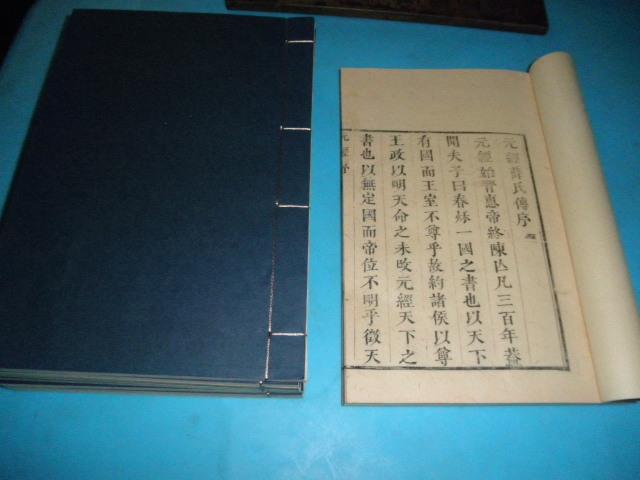 元經薛氏傳序
元經始晉惠帝終陳亾凡三百年蓋
聞夫子曰春秌一國之書也以天下
有國而王室不尊乎故約諸侯以尊
王政以明天命之未改元經天下之
書也以無定國而帝位不明乎徵天
元經序